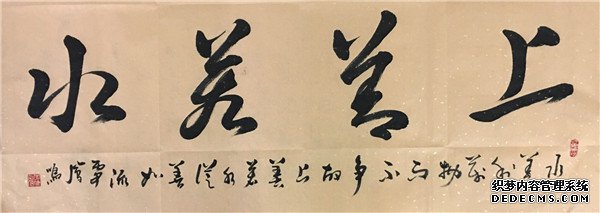 上善若水
水善利万物而不争故上善若水从善如流
织梦内容管理系统
DEDECMS.COM